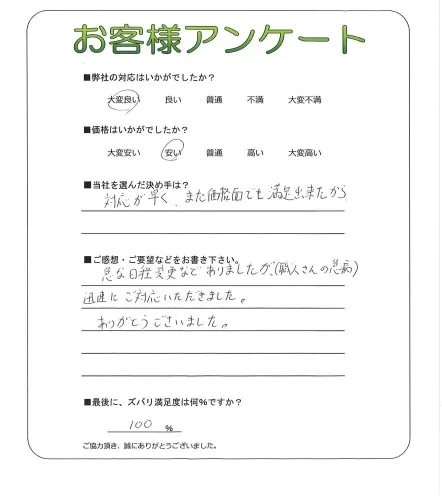 お客様アンケート
■弊社の対応はいかがでしたか?
大変良い 良い 普通 不満 大変不満
■価格はいかがでしたか?
大変安い 安い 普通 高い 大変高い
■当社を選んだ決め手は?
対応が早く、また価格面でも満足出来たから
■ご感想・ご要望などをお書き下さい。
急な日程変更などありましたが、(職人さんの急病)
迅速にご対応いただきました。
ありがとうございました。
■最後に、ズバリ満足度は何%ですか?
100 %
ご協力頂き、誠にありがとうございました。